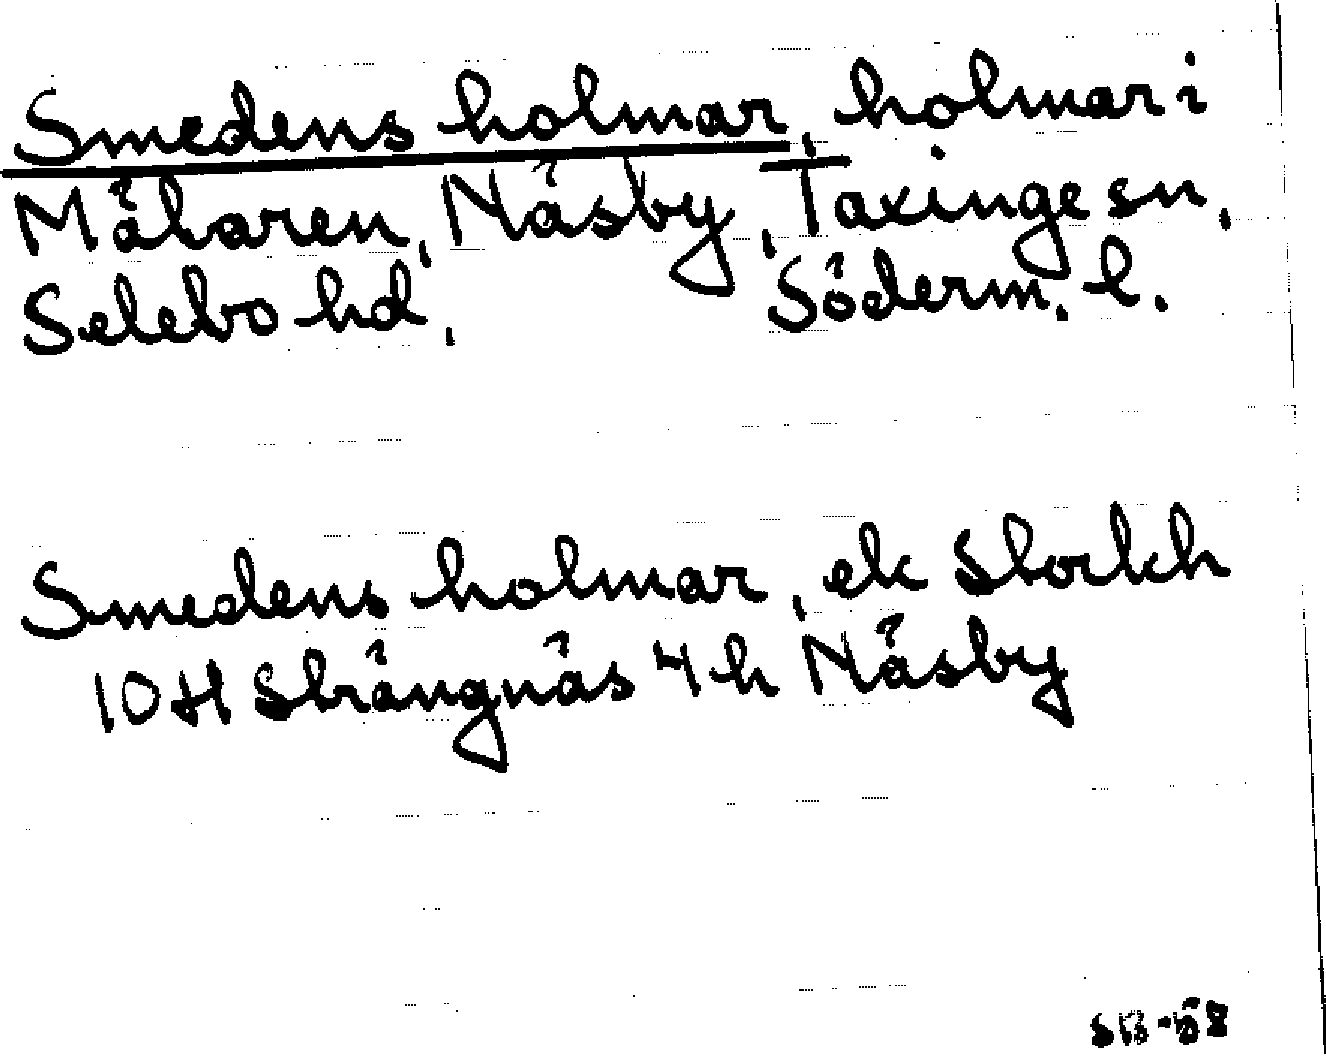 Smedens holmar, holmar i
Mälaren, Näsby, Taxinge sn,
Selebo hd, Söderm. l.
Smedens holmar, ek Stockh
10H Strängnäs 4h Näsby